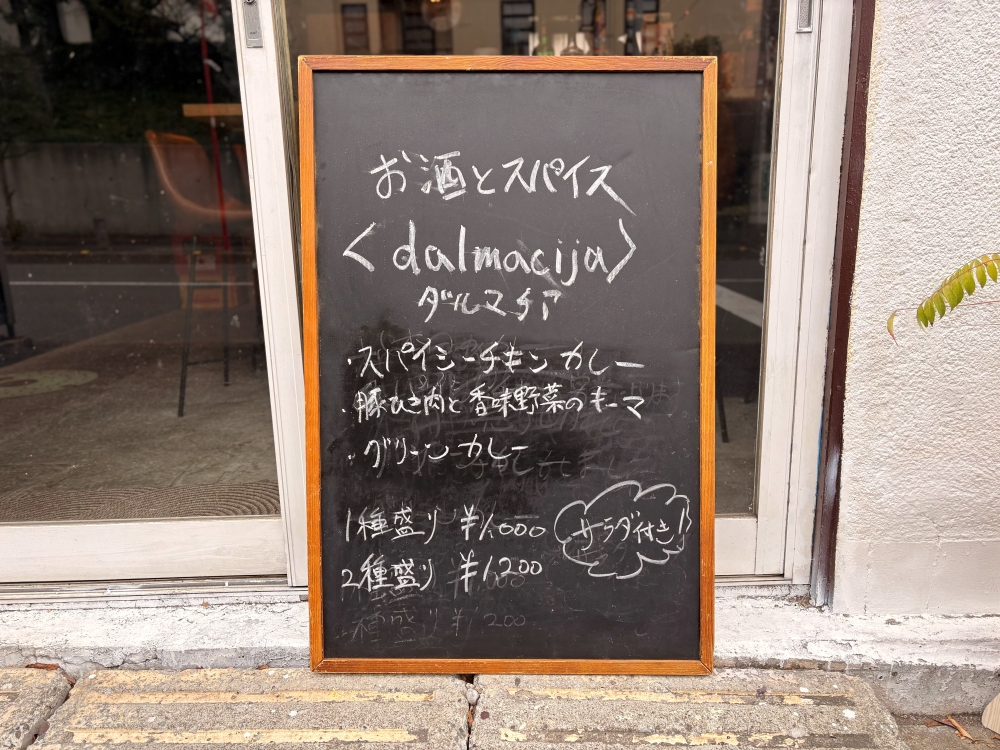 お酒とスパイス
〈dalmacija〉
ダルマチア
・スパイシーチキンカレー
・豚ひき肉と香味野菜のキーマ
・グリーンカレー
1種盛り ¥1,000
サラダ付き!
2種盛り ¥1,200
種盛り ¥1200